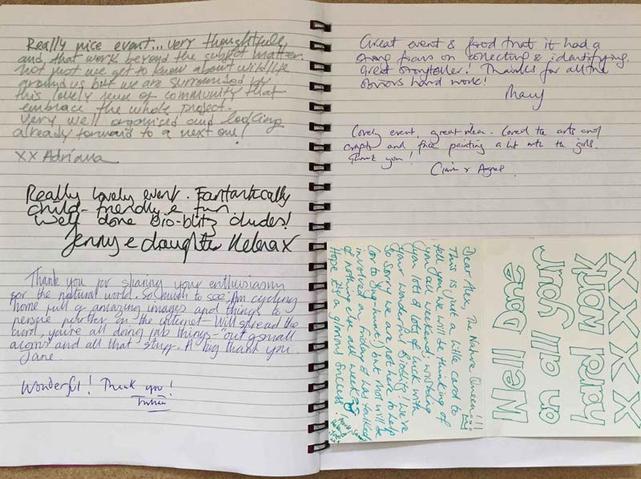 Really nice event... very thoughtfully
and that work beyond the subject matter.
not just we get to know about wildlife
around us but we are surrounded by
this lovely sense of community that
embrace the whole project.
Very well organised and looking
already forward to a next one!
XX Adriana
Really lovely event. Fantastically
child-friendly & fun.
Well done Bio-blitz dudes!
Jenny & daughter Helena X
Thank you for sharing your enthusiasm
for the natural world. So much to see. Am cycling
home full of amazing images and things to
peruse further on the internet. Will spread the
word, you're all doing
and all that stuff. A big thank you
Jane.
Wonderful! Thank you!
Great event & good that it had a
strong focus on collecting & identifying.
great storyteller! Thanks for all the
hard work!
Mary
Lovely event, great idea. Loved the arts and
crafts and face painting a hit with the girls.
Thank you!
Dear Alex, The Nature Queen!!!
This is just a little card to
tell you we will be thinking of
you all weekend, wishing
you lots & lots of luck with
your wonderful Bioblitz! We're
so sorry we are not here to help
but will be
involved on Friday. He has talked
of nothing else all week!
Hope it's a glorious success
Well Done
on all your
hard work
XXXXX